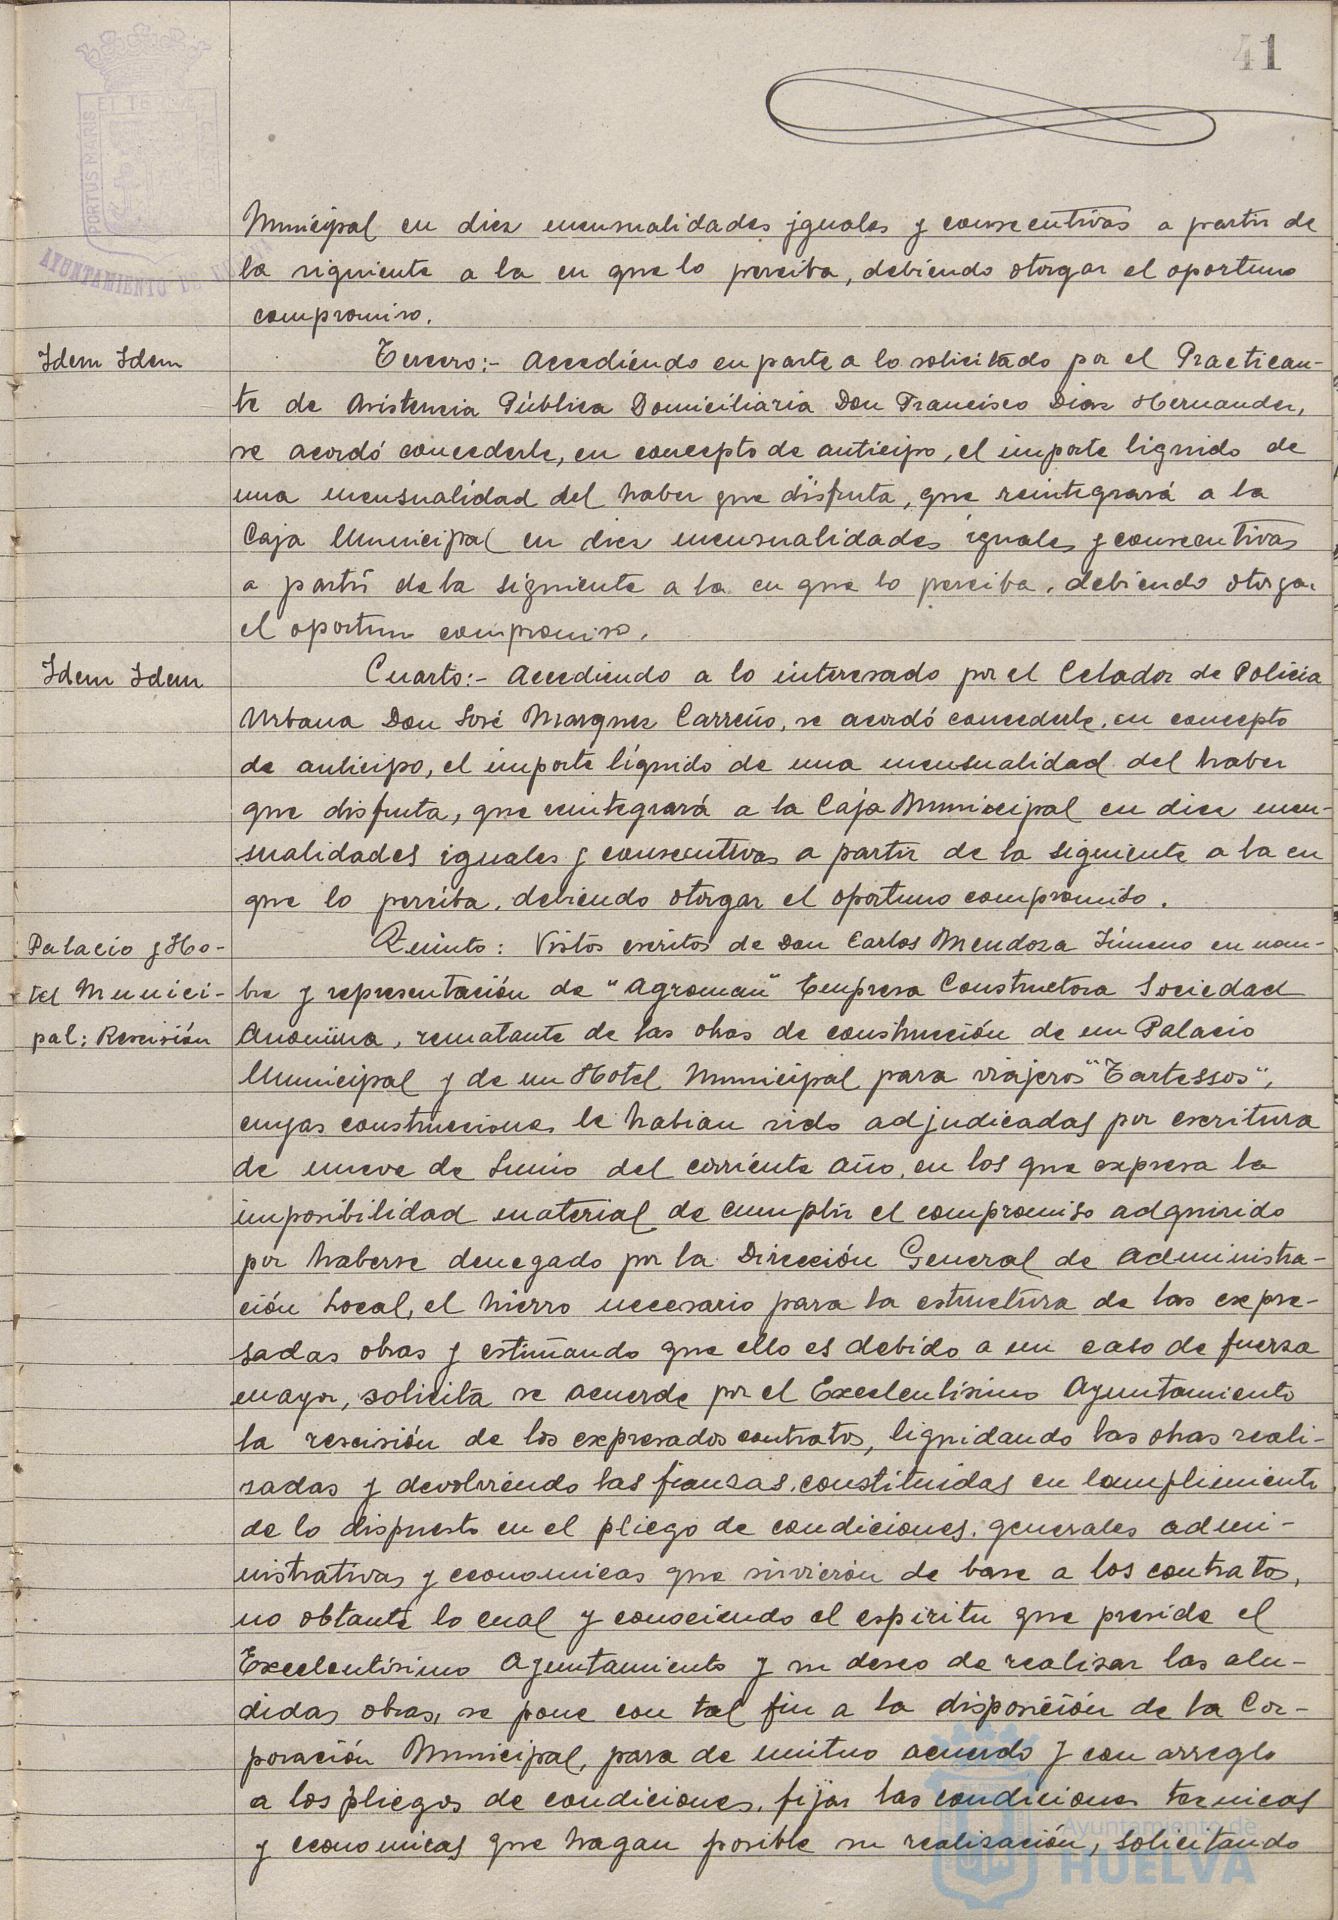 41
PORTUS MARIS
ET TERRÆ
CUSTODIA
AYUNTAMIENTO DE HUELVA
Municipal en diez mensualidades iguales y consecutivas a partir de
la siguiente a la en que lo perciba, debiendo otorgar el oportuno
compromiso.
Idem Idem
Tercero:- Accediendo en parte a lo solicitado por el Practican-
te de Asistencia Pública Domiciliaria Don Francisco Diaz Hernandez,
se acordó concederle, en concepto de anticipo, el importe liquido de
una mensualidad del haber que disfruta, que reintegrará a la
Caja Municipal en diez mensualidades iguales y consecutivas
a partir de la siguiente a la en que lo perciba, debiendo otorgar
el oportuno compromiso.
Idem Idem
Cuarto:- Accediendo a lo interesado por el Celador de Policia
Urbana Don José Marquez Carreño, se acordó concederle, en concepto
de anticipo, el importe líquido de una mensualidad del haber
que disfruta, que reintegrará a la Caja Municipal en diez men-
sualidades iguales y consecutivas a partir de la siguiente a la en
que lo perciba, debiendo otorgar el oportuno compromiso.
Palacio y Ho-
tel Munici-
pal: Rescisión
Quinto: Vistos escritos de Don Carlos Mendoza Jimeno en nom-
bre y representación de "Agroman" Empresa Constructora Sociedad
Anonima, rematante de las obras de construcción de un Palacio
Municipal y de un Hotel Municipal para viajeros "Tartessos",
cuyas construcciones le habian sido adjudicadas por escritura
de nueve de Junio del corriente año, en los que expresa la
imposibilidad material de cumplir el compromiso adquirido
por haberse denegado por la Dirección General de Administra-
ción Local, el hierro necesario para la estructura de las expre-
sadas obras y estimando que ello es debido a un caso de fuerza
mayor, solicita se acuerde por el Excelentísimo Ayuntamiento
la rescisión de los expresados contratos, liquidando las obras reali-
zadas y devolviendo las fianzas constituidas en cumplimiento
de lo dispuesto en el pliego de condiciones generales admi-
nistrativas y economicas que sirvieron de base a los contratos,
no obtante lo cual y conociendo el espiritu que preside el
Excelentísimo Ayuntamiento y su deseo de realizar las alu-
didas obras, se pone con tal fin a la disposición de la Cor-
poración Municipal, para de mutuo acuerdo y con arreglo
a los pliegos de condiciones, fijar las condiciones tecnicas
y economicas que hagan posible su realización, solicitando
Ayuntamiento de
HUELVA